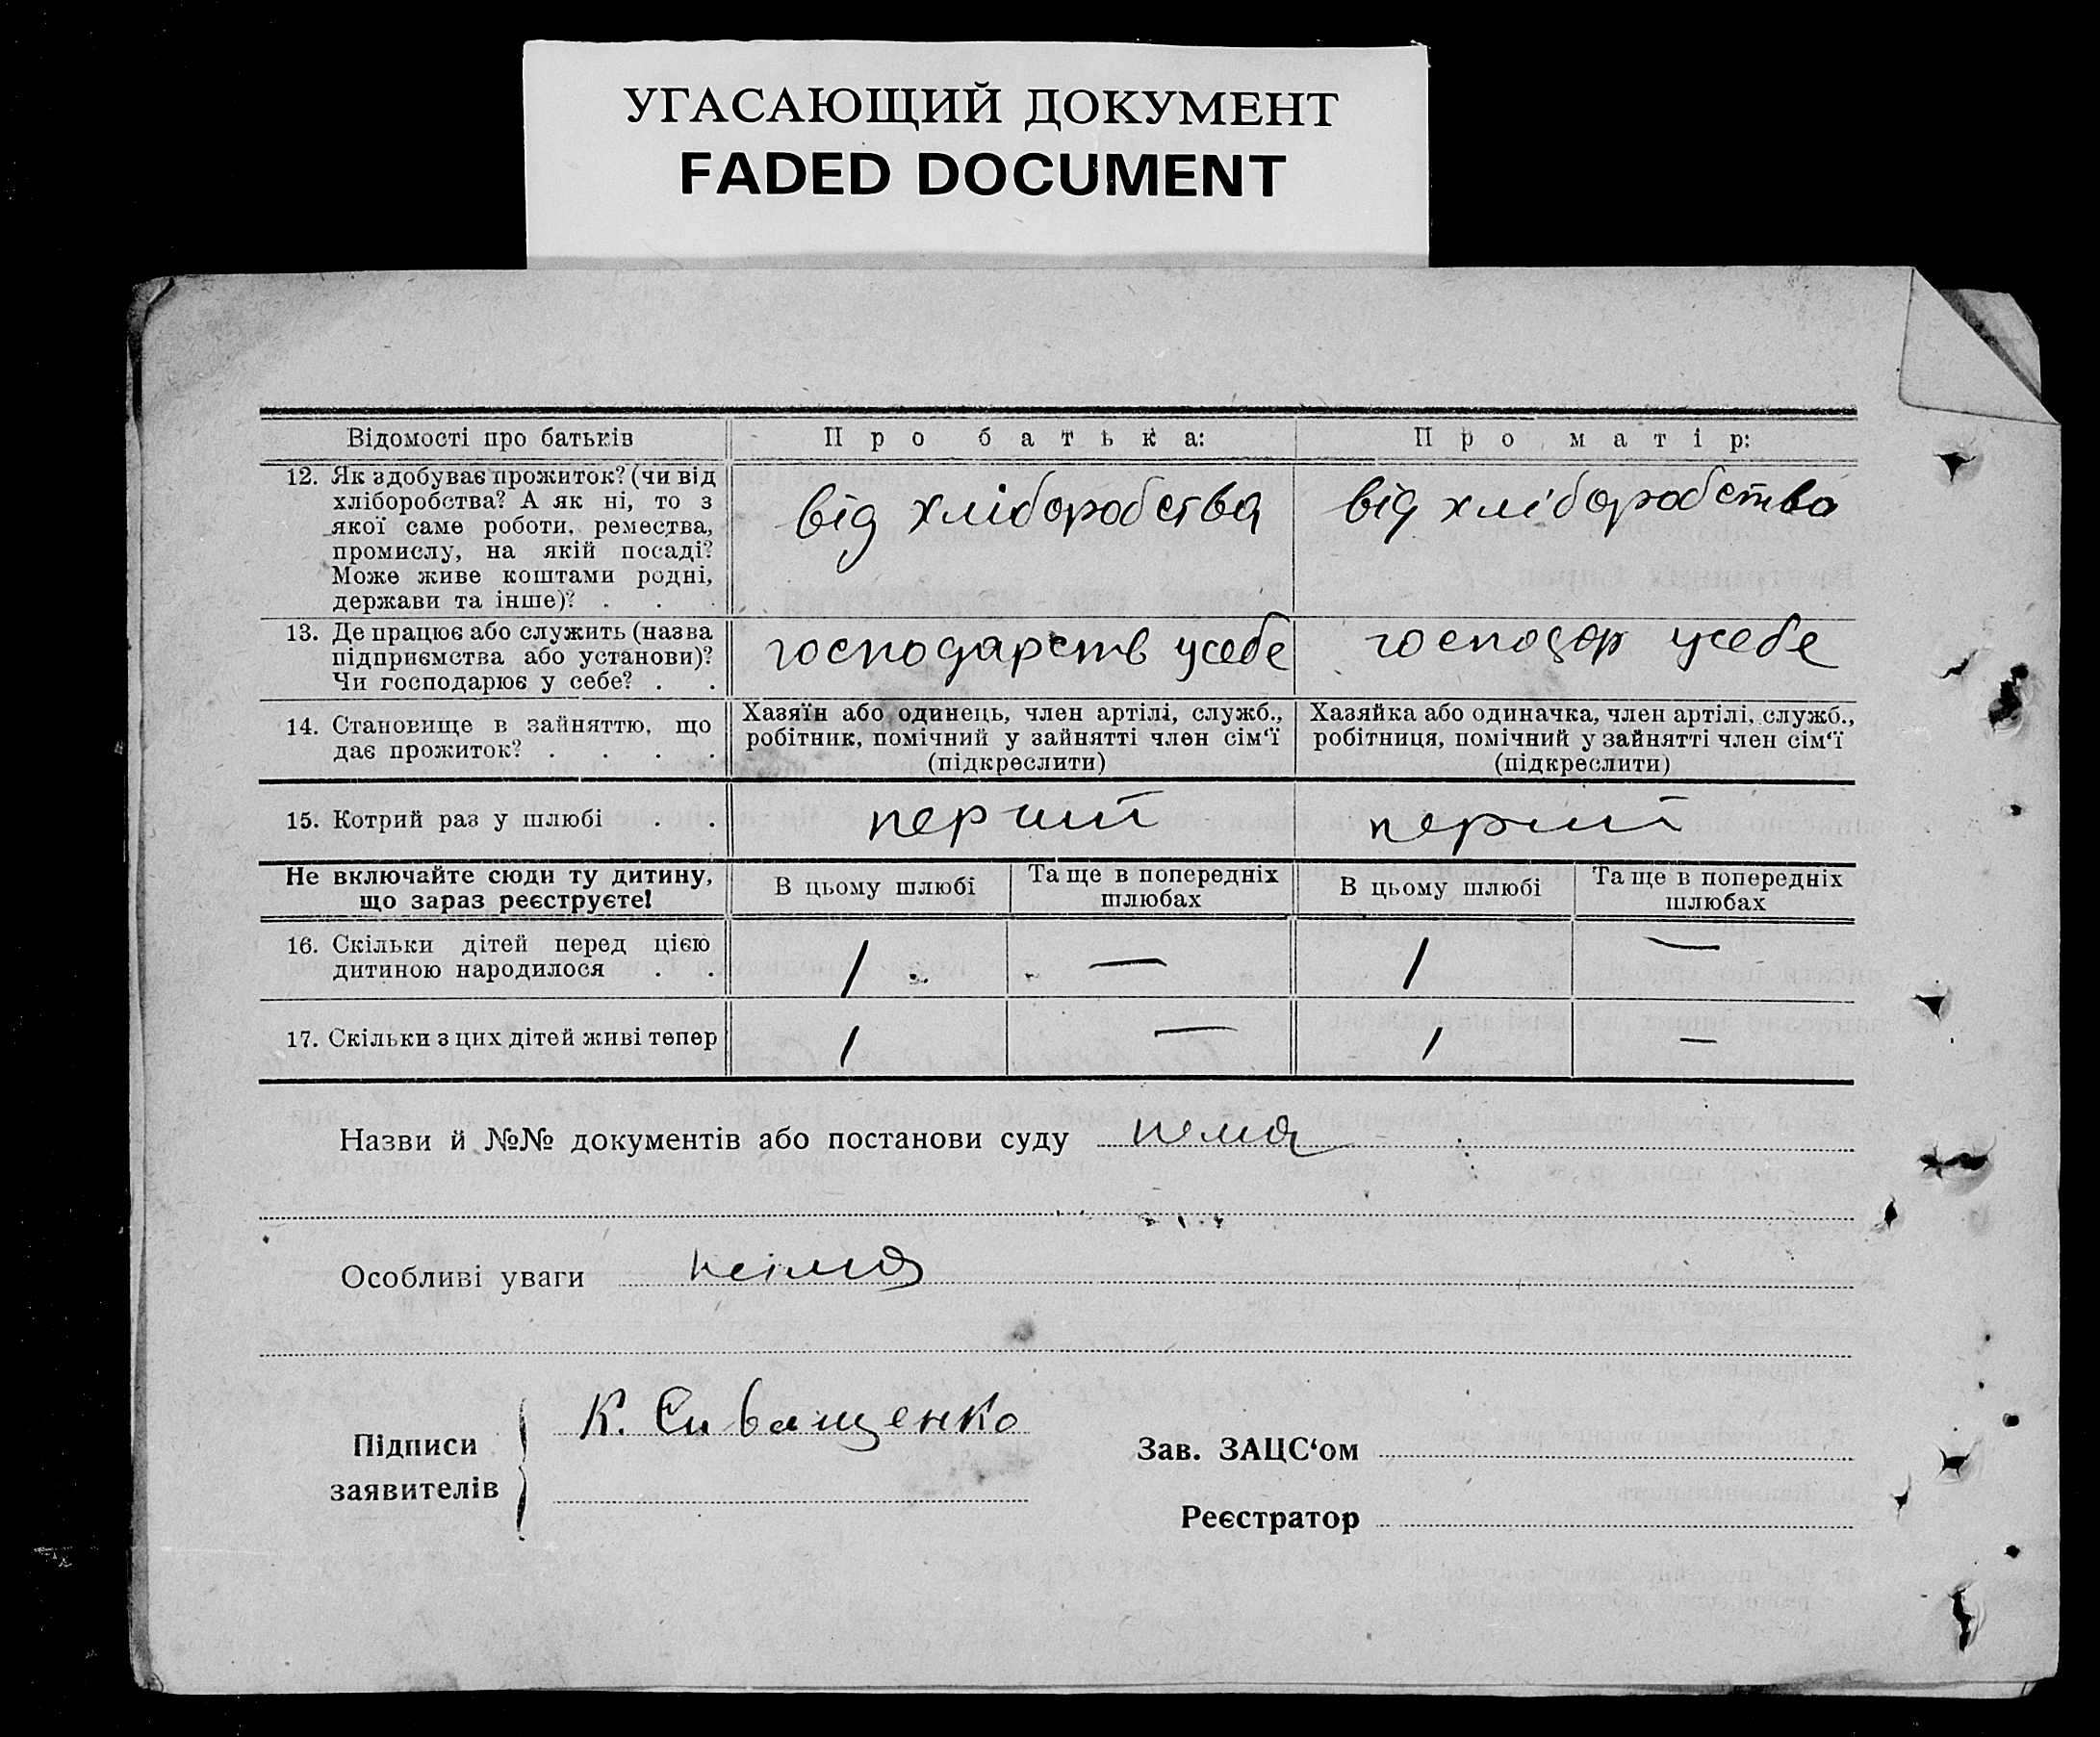 УГАСАЮЩИЙ ДОКУМЕНТ
FADED DOCUMENT
Відомості про батьків
Про батька:
Про матір:
12. Як здобуває прожиток? (чи від
хліборобства? А як ні, то з
якої саме роботи, ремества,
промислу, на якій посаді?
Може живе коштами родні,
держави та інше)? . . .
від хліборобства
від хліборобства
13. Де працює або служить (назва
підприємства або установи)?
Чи господарює у себе? . .
господарств усебе
господар усебе
14. Становище в зайняттю, що
дає прожиток? . . . .
Хазяїн або одинець, член артілі, служб.,
робітник, помічний у зайнятті член сім‘ї
(підкреслити)
Хазяйка або одиначка, член артілі, служб.,
робітниця, помічний у зайнятті член сім‘ї
(підкреслити)
15. Котрий раз у шлюбі . .
перший
перший
Не включайте сюди ту дитину,
що зараз реєструєте!
В цьому шлюбі
Та ще в попередніх
шлюбах
В цьому шлюбі
Та ще в попередніх
шлюбах
16. Скільки дітей перед цією
дитиною народилося . .
1 — 1 —
17. Скільки з цих дітей живі тепер
1 — 1 —
Назви й №№ документів або постанови суду нема
Особливі уваги неіма
Підписи
заявителів
К. Сиващенко
Зав. ЗАЦС‘ом
Реєстратор